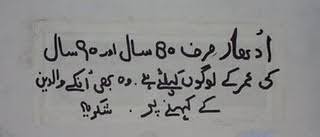 اُدھار صرف 80 سال اور 90 سال
کی عمر کے لوگوں کیلئے ہے. وہ بھی اُنکے والدین
کے کہنے پر. شکریہ